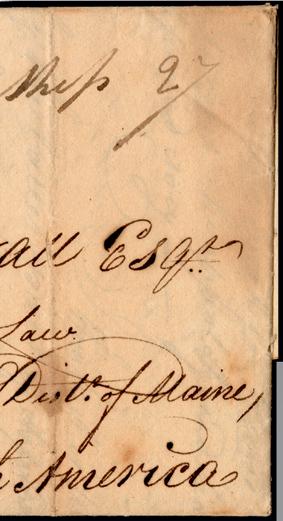 Ship 27
all Esqr.
Law
Distt. of Maine,
h America